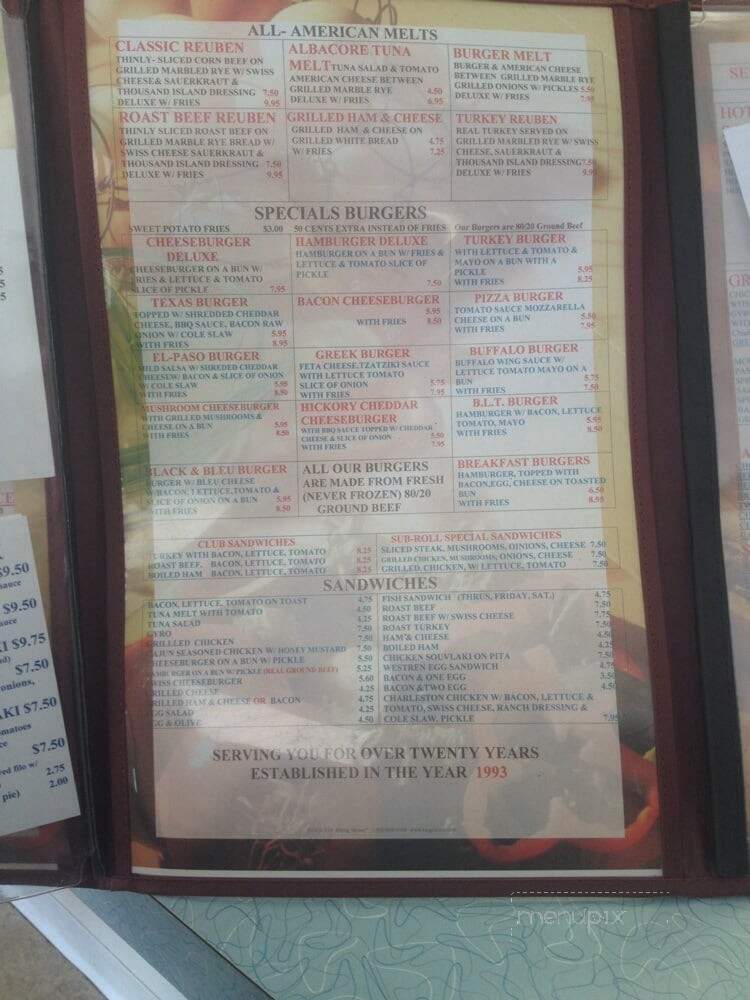 ALL- AMERICAN MELTS
CLASSIC REUBEN
THINLY- SLICED CORN BEEF ON
GRILLED MARBLED RYE W/ SWISS
CHEESE& SAUERKRAUT &
THOUSAND ISLAND DRESSING 7.50
DELUXE W/ FRIES 9.95
ALBACORE TUNA
MELT TUNA SALAD & TOMATO
AMERICAN CHEESE BETWEEN
GRILLED MARBLE RYE 4.50
DELUXE W/ FRIES 6.95
BURGER MELT
BURGER & AMERICAN CHEESE
BETWEEN GRILLED MARBLE RYE
GRILLED ONIONS W/ PICKLES 5.50
DELUXE W/ FRIES 7.95
ROAST BEEF REUBEN
THINLY SLICED ROAST BEEF ON
GRILLED MARBLE RYE BREAD W/
SWISS CHEESE SAUERKRAUT &
THOUSAND ISLAND DRESSING 7.50
DELUXE W/ FRIES 9.95
GRILLED HAM & CHEESE
GRILLED HAM & CHEESE ON
GRILLED WHITE BREAD 4.75
W/ FRIES 7.25
TURKEY REUBEN
REAL TURKEY SERVED ON
GRILLED MARBLED RYE W/ SWISS
CHEESE, SAUERKRAUT &
THOUSAND ISLAND DRESSING
DELUXE W/ FRIES
SPECIALS BURGERS
SWEET POTATO FRIES $3.00 50 CENTS EXTRA INSTEAD OF FRIES Our Burgers are 80/20 Ground Beef
CHEESEBURGER
DELUXE
CHEESEBURGER ON A BUN W/
FRIES & LETTUCE & TOMATO
SLICE OF PICKLE 7.95
HAMBURGER DELUXE
HAMBURGER ON A BUN W/ FRIES &
LETTUCE & TOMATO SLICE OF
PICKLE
7.50
TURKEY BURGER
WITH LETTUCE & TOMATO &
MAYO ON A BUN WITH A
PICKLE 5.95
WITH FRIES 8.25
TEXAS BURGER
TOPPED W/ SHREDDED CHEDDAR
CHEESE, BBQ SAUCE, BACON RAW
ONION W/ COLE SLAW 5.95
WITH FRIES 8.95
BACON CHEESEBURGER
5.95
WITH FRIES 8.50
PIZZA BURGER
TOMATO SAUCE MOZZARELLA
CHEESE ON A BUN 5.50
WITH FRIES 7.95
EL-PASO BURGER
MILD SALSA W/ SHREDED CHEDDAR
CHEESEW/ BACON & SLICE OF ONION
W/ COLE SLAW 5.95
WITH FRIES 8.50
GREEK BURGER
FETA CHEESE,TZATZIKI SAUCE
WITH LETTUCE TOMATO
SLICE OF ONION 5.75
WITH FRIES 7.95
BUFFALO BURGER
BUFFALO WING SAUCE W/
LETTUCE TOMATO MAYO ON A
BUN 5.75
WITH FRIES 7.50
MUSHROOM CHEESEBURGER
WITH GRILLED MUSHROOMS &
CHEESE ON A BUN 5.95
WITH FRIES 8.50
HICKORY CHEDDAR
CHEESEBURGER
WITH BBQ SAUCE TOPPED W/ CHEDDAR
CHEESE & SLICE OF ONION 5.50
WITH FRIES 7.95
B.L.T. BURGER
HAMBURGER W/ BACON, LETTUCE
TOMATO, MAYO 5.95
WITH FRIES 8.50
BLACK & BLEU BURGER
BURGER W/ BLEU CHEESE
W/BACON, LETTUCE,TOMATO &
SLICE OF ONION ON A BUN 5.95
WITH FRIES 8.50
ALL OUR BURGERS
ARE MADE FROM FRESH
(NEVER FROZEN) 80/20
GROUND BEEF
BREAKFAST BURGERS
HAMBURGER, TOPPED WITH
BACON,EGG, CHEESE ON TOASTED
BUN 6.50
WITH FRIES 8.95
CLUB SANDWICHES
TURKEY WITH BACON, LETTUCE, TOMATO 8.25
ROAST BEEF, BACON, LETTUCE, TOMATO 8.25
BOILED HAM BACON, LETTUCE, TOMATO 8.25
SUB-ROLL SPECIAL SANDWICHES
SLICED STEAK, MUSHROOMS, OINIONS, CHEESE 7.50
GRILLED CHICKEN, MUSHROOMS, ONIONS, CHEESE 7.50
GRILLED, CHICKEN, W/ LETTUCE, TOMATO 7.50
SANDWICHES
BACON, LETTUCE, TOMATO ON TOAST 4.75
TUNA MELT WITH TOMATO 4.50
TUNA SALAD 4.25
GYRO 7.50
GRILLLED CHICKEN 7.50
CAJUN SEASONED CHICKEN W/ HONEY MUSTARD 7.50
CHEESEBURGER ON A BUN W/ PICKLE 5.50
HAMBURGER ON A BUN W/ PICKLE (REAL GROUND BEEF) 5.25
SWISS CHEESEBURGER 5.60
GRILLED CHEESE 4.25
GRILLED HAM & CHEESE OR BACON 4.75
EGG SALAD 4.25
EGG & OLIVE 4.50
FISH SANDWICH (THRUS, FRIDAY, SAT.) 4.75
ROAST BEEF 7.50
ROAST BEEF W/ SWISS CHEESE 7.75
ROAST TURKEY 7.50
HAM & CHEESE 4.50
BOILED HAM 4.25
CHICKEN SOUVLAKI ON PITA 7.50
WESTREN EGG SANDWICH 4.75
BACON & ONE EGG 3.50
BACON &TWO EGG 4.50
CHARLESTON CHICKEN W/ BACON, LETTUCE &
TOMATO, SWISS CHEESE, RANCH DRESSING &
COLE SLAW, PICKLE 7.95
SERVING YOU FOR OVER TWENTY YEARS
ESTABLISHED IN THE YEAR 1993
$9.50
sauce
$9.50
$9.75
$7.50
onions,
$7.50
$7.50
2.75
pie) 2.00
menupix